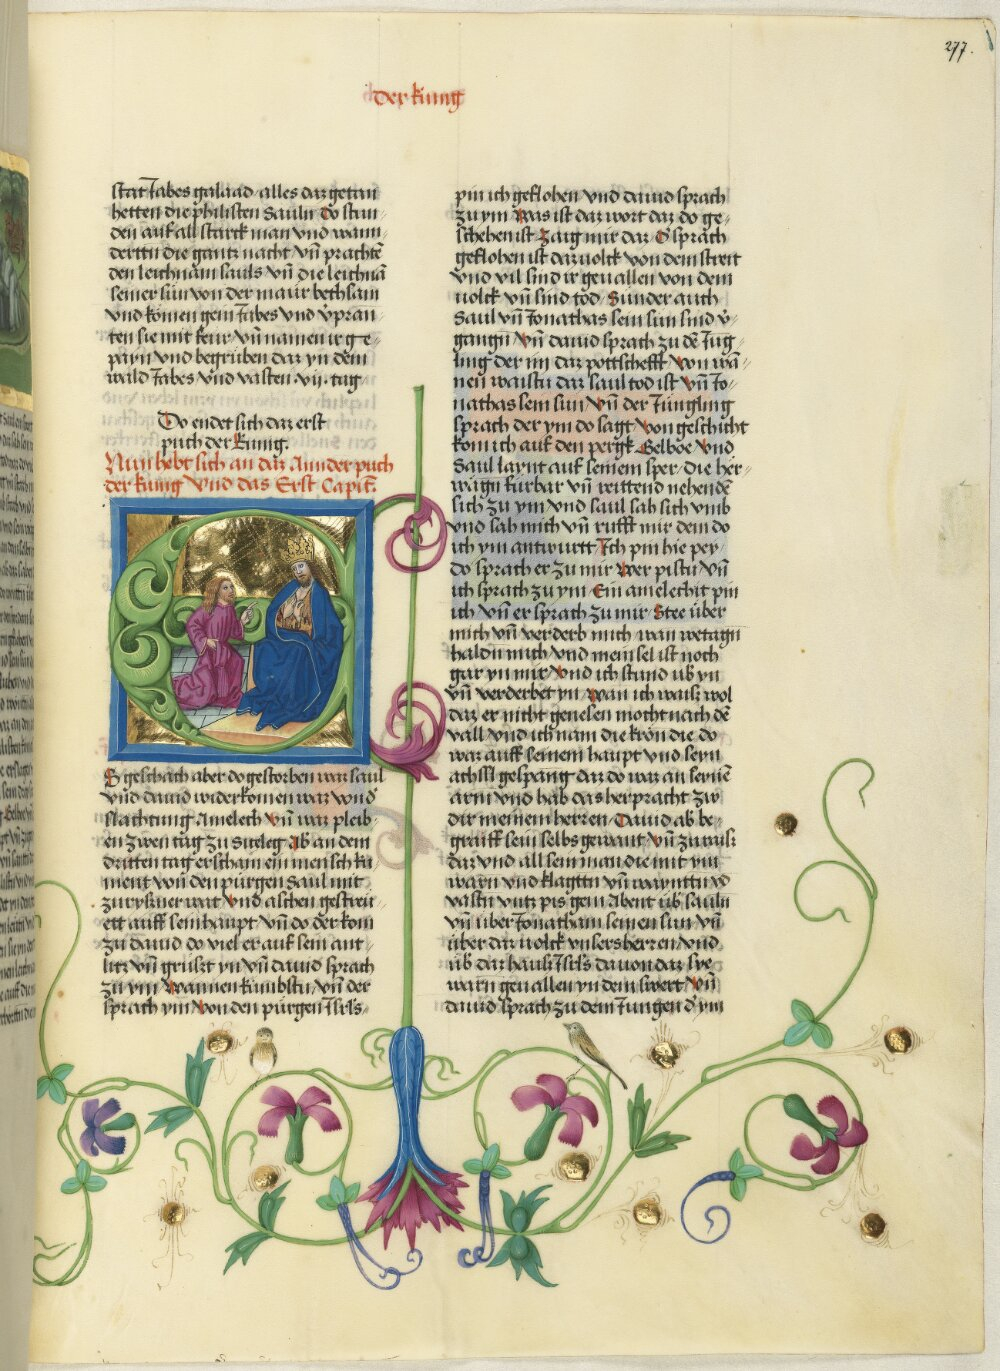 277.
der kung
stat Jabes galaad alles daz getan
hetten die philisten Sauln Do stun-
den auf all starck man vnd wann-
dertn die gantz nacht vn̄ prachtē
den leichnam sauls vn̄ die leichnā
seiner sün von der maur bethsam
vnd komen gein Jabes vnd vpran-
ten sie mit feur vn̄ namen ir ge-
payn vnd begruben daz yn dem
wald Jabes vnd vasten .vij. tag
Do endet sich daz erst
puch der kunig.
Nun hebt sich an daz Annder puch
der kunig Vnd das Erst Capit̄.
Es geschach aber do gestorben war saul
vnd dauid widerkomen waz von d̉
slachtung Amelech vn̄ waz pleib-
en zwen tag zu Siceleg Ab an dem
dritten tag erscham ein mensch ku
ment von den pürgen Saul mit
zurysner wat vnd aschen gestreu-
ett auff sein haupt vn̄ do der kom
zu dauid do viel er auf sein ant-
litz vn̄ grüszt yn vn̄ dauid sprach
zu ym Wannen kumbstu vn̄ der
sprach ym von den pürgen Isrls
pin ich geflohen vnd dauid sprach
zu ym Was ist daz wort daz do ge-
schehen ist Zaig mir daz E sprach
geflohen ist daz volck von dem streit
vnd vil sind ir geuallen von dem
volck vn̄ sind tod Sunder auch
Saul vn̄ Jonathas sein sun sind v̉-
gangn vn̄ dauid sprach zu dē Jug-
ling der im daz pottschefft Von wā-
nen waistu daz saul tod ist vn̄ Jo-
nathas sein sun vn̄ der Jungling
sprach der ym do sagt Von geschicht
kom ich auf den pergk Gelboe vnd
Saul laynt auf seinem sper die her-
wägn furbar vn̄ reittend nehendē
sich zu ym vnd saul sah sich vmb
vnd sah mich vn̄ rufft mir dem do
ich ym antwurtt Ich pin hie pey
do sprach er zu mir Wer pistu vn̄
ich sprach zu ym Ein amelechit pin
ich vn̄ er sprach zu mir Stee über
mich vn̄ verderb mich wan wetagn
haldn mich vnd mein sel ist noch
gar yn mir vnd ich stund üb yn
vn̄ verderbet yn wan ich waisz wol
daz er nicht genesen mocht nach dē
vall vnd ich nam die kron die do
waz auff seinem haupt vnd seyn
achssl gespang daz do waz an seynē
arm vnd hab das herpracht zw
dir meinem herren Dauid ab be-
graiff sein selbs gewant vn̄ zuraisz
daz vnd all sein man die mit ym
warn vnd klagttn vn̄ wayntten vd
vastn vntz pis gein Abent üb sauln
vn̄ über Jonatham seinen sun vn̄
über daz volck vnsers herren vnd
üb daz hausz Isrls dauon daz sye
warn geuallen yn dem swert vn̄
dauid sprach zu dem Jungen d̉ ym